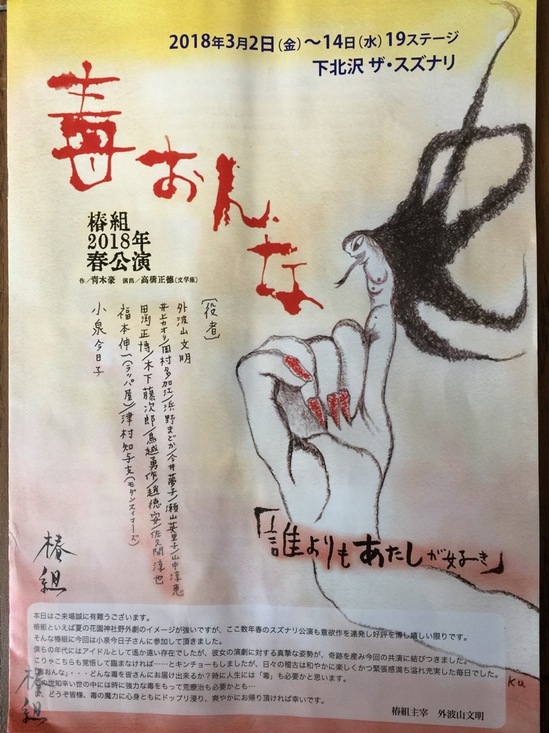 2018年3月2日(金)〜14日(水)19ステージ
下北沢 ザ・スズナリ
毒おんな
椿組
2018年
春公演
作/青木豪 演出/高橋正徳(文学座)
[役者]
外波山文明
井上カオリ/田村多加江/浜野まどか/今井夢子/瀬山英里子/山中淳恵
田渕正博/木下藤次郎/鳥越勇作/趙徳安/佐久間淳也
福本伸一(ラッパ屋)/津村知与支(モダンスイマーズ)
小泉今日子
「誰よりもあたしが好き」
椿組
本日はご来場誠に有難うございます。
椿組といえば夏の花園神社野外劇のイメージが強いですが、ここ数年春のスズナリ公演も意欲作を連発し好評を博し嬉しい限りです。
そんな椿組に今回は小泉今日子さんに参加して頂きました。
僕らの年代にはアイドルとして遥か遠い存在でしたが、彼女の演劇に対する真摯な姿勢が、奇跡を産み今回の共演に結びつきました。
こりゃこちらも覚悟して臨まなければ……とキンチョーもしましたが、日々の稽古は和やかに楽しくかつ緊張感満ち溢れ充実した毎日でした。
「毒おんな」・・・どんな毒を皆さんにお届け出来るか?時に人生には「毒」も必要かと思います。
世知辛い世の中には時に強力な毒をもって荒療治も必要かとも…
どうぞ皆様、毒の魔力に心身ともにドップリ浸り、爽やかにお帰り頂ければ幸いです。
椿組主宰 外波山文明
椿組
Ku